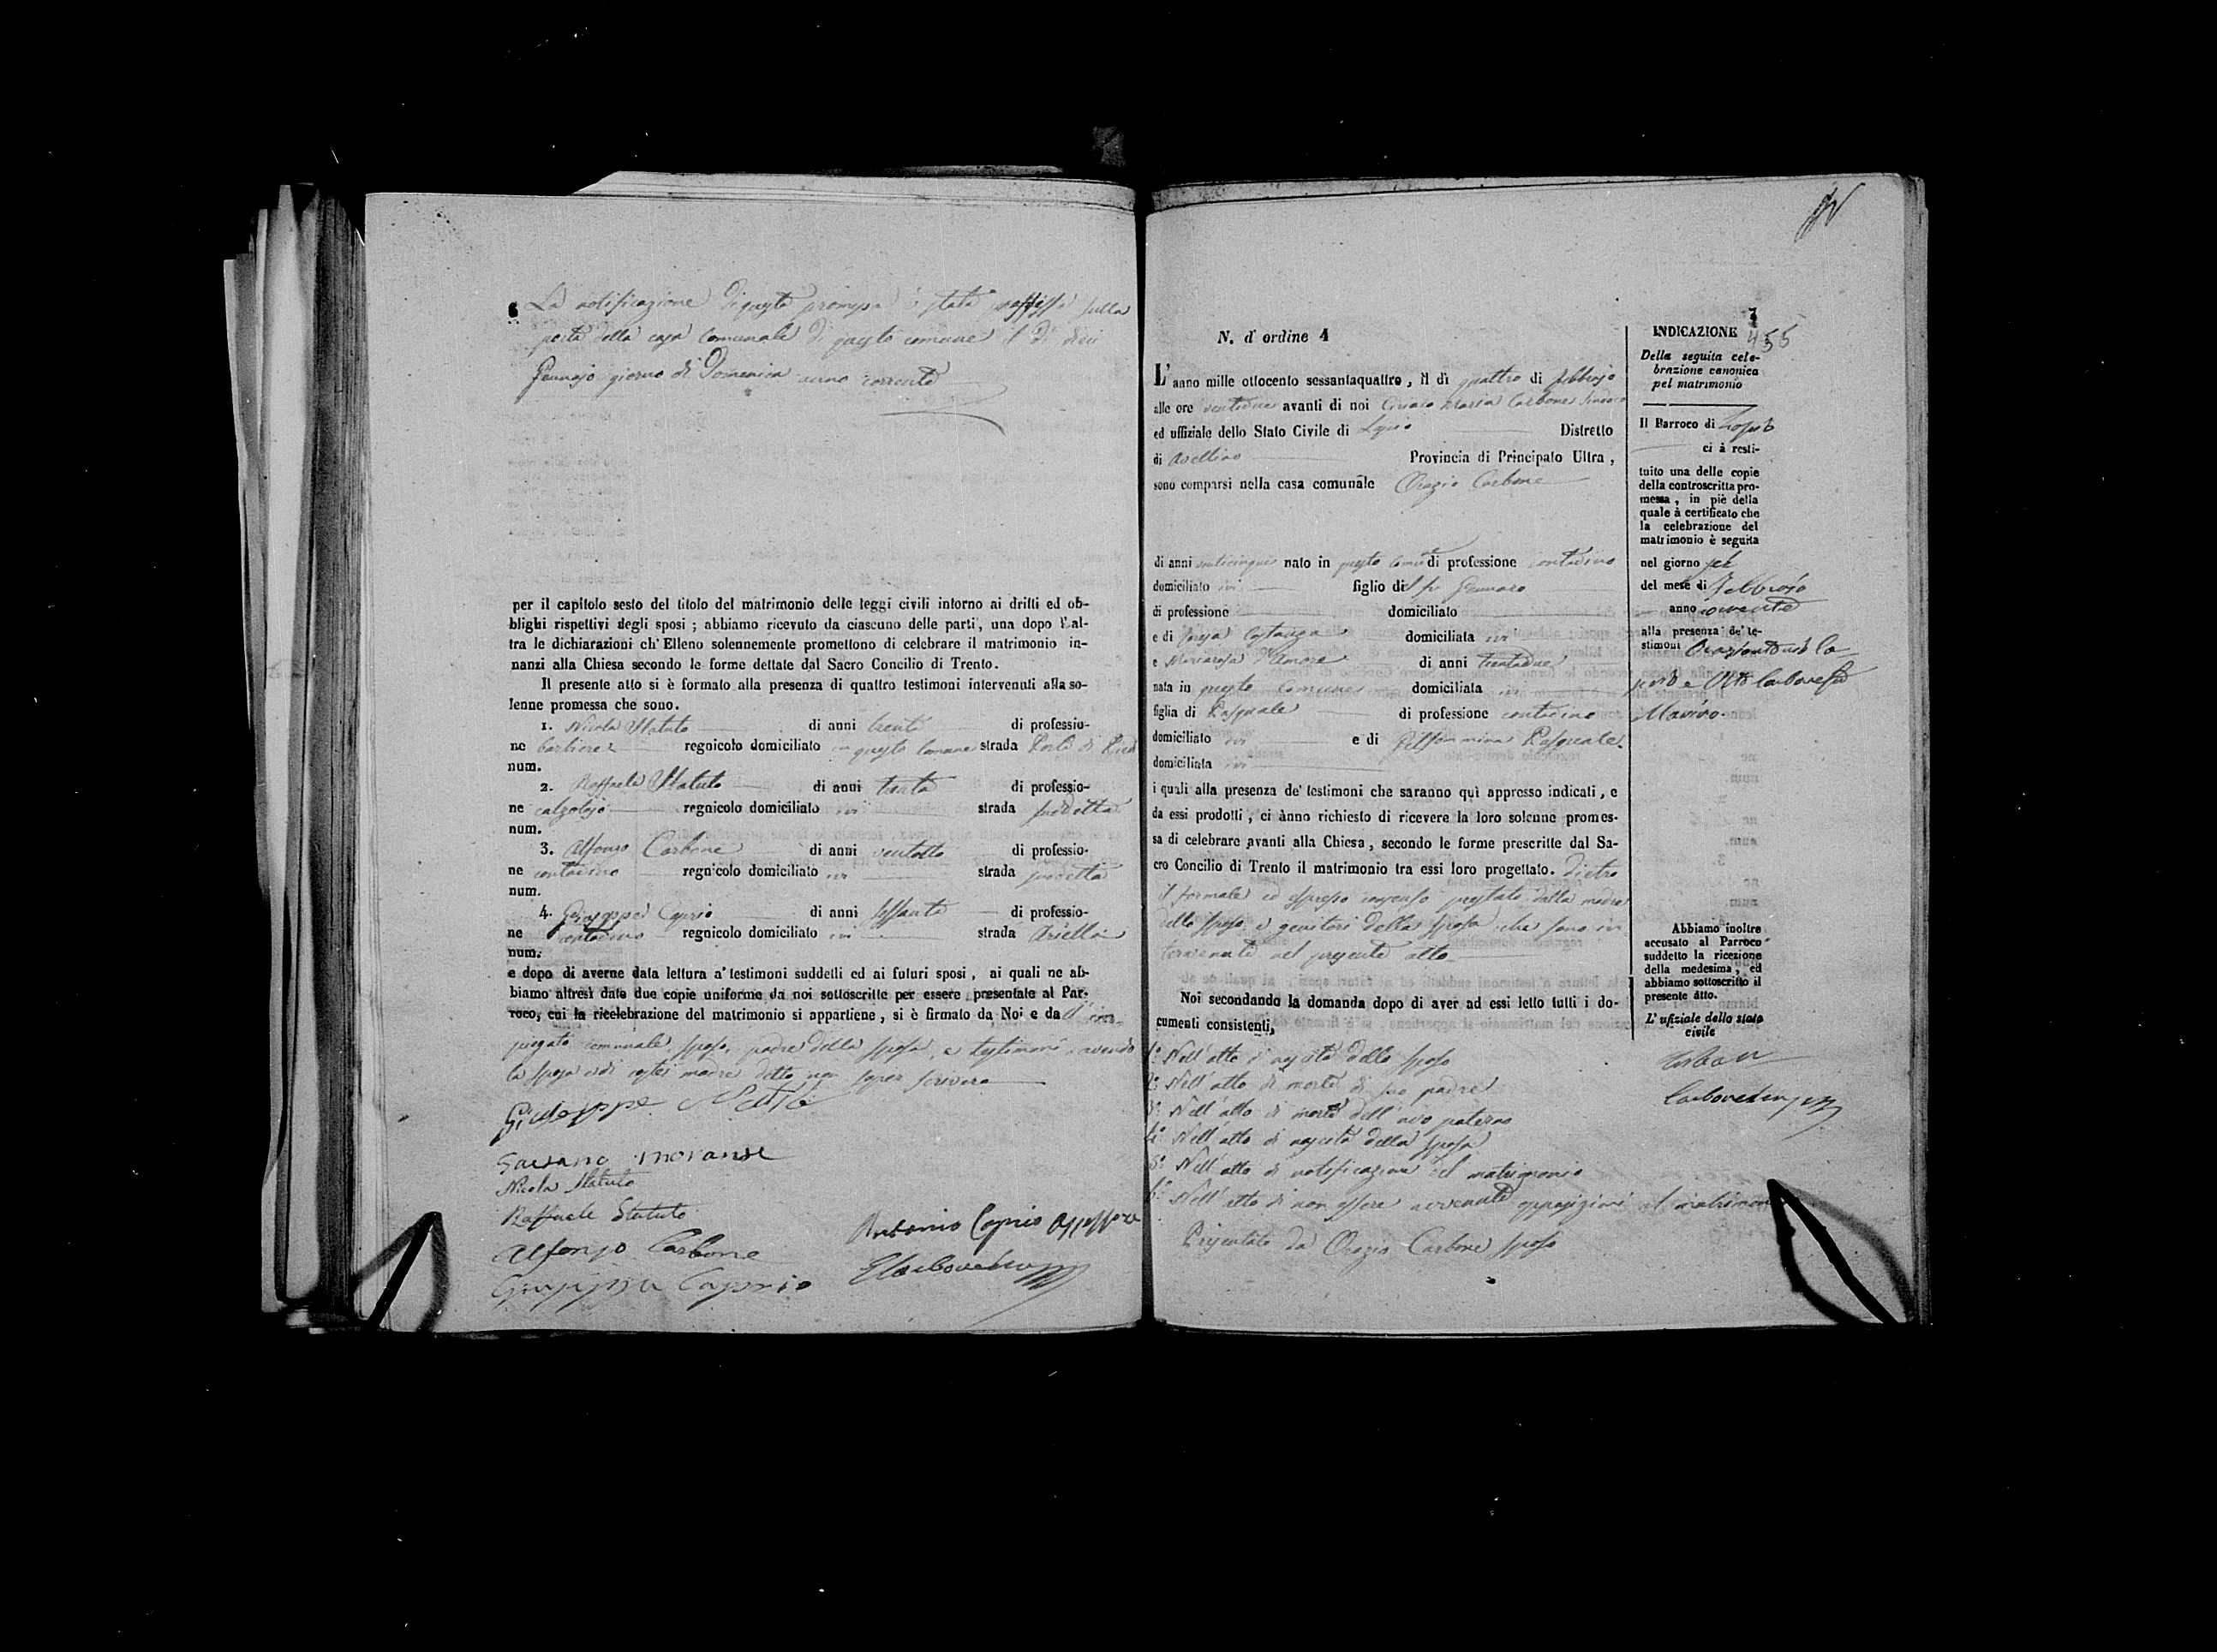 6
La notificazione di questa promessa è stata affissa sulla
porta della casa Comunale di questo comune il dì dieci
Gennajo giorno di Domenica anno corrente
per il capitolo sesto del titolo del matrimonio delle leggi civili intorno ai dritti ed ob-
blighi rispettivi degli sposi ; abbiamo ricevuto da ciascuno delle parti, una dopo l'al-
tra le dichiarazioni ch' Elleno solennemente promettono di celebrare il matrimonio in-
nanzi alla Chiesa secondo le forme dettate dal Sacro Concilio di Trento.
Il presente atto si è formato alla presenza di quattro testimoni intervenuti alla so-
lenne promessa che sono.
1. Nicola Statuto di anni trenta di professio-
ne barbiere regnicolo domiciliato in questo Comune strada Porta di
num.
2. Raffaele Statuto di anni trenta di professio-
ne calzolajo regnicolo domiciliato ivi strada suddetta
num.
3. Alfonso Carbone di anni ventotto di professio-
ne contadino regnicolo domiciliato ivi strada suddetta
num.
4. Giuseppe Caprio di anni sessanta di professio-
ne contadino regnicolo domiciliato ivi strada Ariella
num.
e dopo di averne data lettura a' testimoni suddetti ed ai futuri sposi, ai quali ne ab-
biamo altresì date due copie uniforme da noi sottoscritte per essere presentate al Par-
roco, cui la ricelebrazione del matrimonio si appartiene, si è firmato da Noi e da
piegato comunale sposo, padre della sposa, e testimoni avendo
la sposa e di costei madre detto non saper scrivere
Giuseppe
Gaetano
Nicola Statuto
Raffaele Statuto
Alfonso Carbone
Giuseppe Caprio
Antonio Caprio Assessore
7
455
N. d' ordine 4
L' anno mille ottocento sessantaquattro, il dì quattro di febbrajo
alle ore ventidue avanti di noi Ciriaco Maria Carbone Sindaco
ed uffiziale dello Stato Civile di Distretto
di Avellino Provincia di Principato Ultra,
sono comparsi nella casa comunale Orazio Carbone
di anni venticinque nato in questo Comune di professione contadino
domiciliato ivi figlio di fu Gennaro
di professione domiciliato
e di Costanza domiciliata ivi
e Mariarosa d'Amore di anni trentadue
nata in questo comune domiciliata ivi
figlia di Pasquale di professione contadino
domiciliato ivi e di Pasquale
domiciliata ivi
i quali alla presenza de' testimoni che saranno quì appresso indicati, e
da essi prodotti, ci ànno richiesto di ricevere la loro solenne promes-
sa di celebrare avanti alla Chiesa, secondo le forme prescritte dal Sa-
cro Concilio di Trento il matrimonio tra essi loro progettato. dietro
il formale ed espresso consenso prestato dalla madre
dello sposo, e genitori della sposa che sono in
tervenuti nel presente atto
Noi secondando la domanda dopo di aver ad essi letto tutti i do-
cumenti consistenti,
1° Nell'atto di nascita dello sposo
2° Nell'atto di morte di suo padre
3° Nell'atto di morte dell'avo paterno
4° Nell'atto di nascita della sposa
5° Nell'atto di notificazione del matrimonio
6° Nell'atto di non essere avvenute opposizioni al matrimonio
Presentato da Orazio Carbone sposo
INDICAZIONE
Della seguita cele-
brazione canonica
pel matrimonio
Il Parroco di
ci à resti-
tuito una delle copie
della controscritta pro-
messa, in piè della
quale à certificato che
la celebrazione del
matrimonio è seguita
nel giorno sei
del mese di Febbrajo
anno corrente
alla presenza de' te-
stimoni
Abbiamo inoltre
accusato al Parroco
suddetto la ricezione
della medesima, ed
abbiamo sottoscritto il
presente atto.
L' ufiziale dello stato
civile